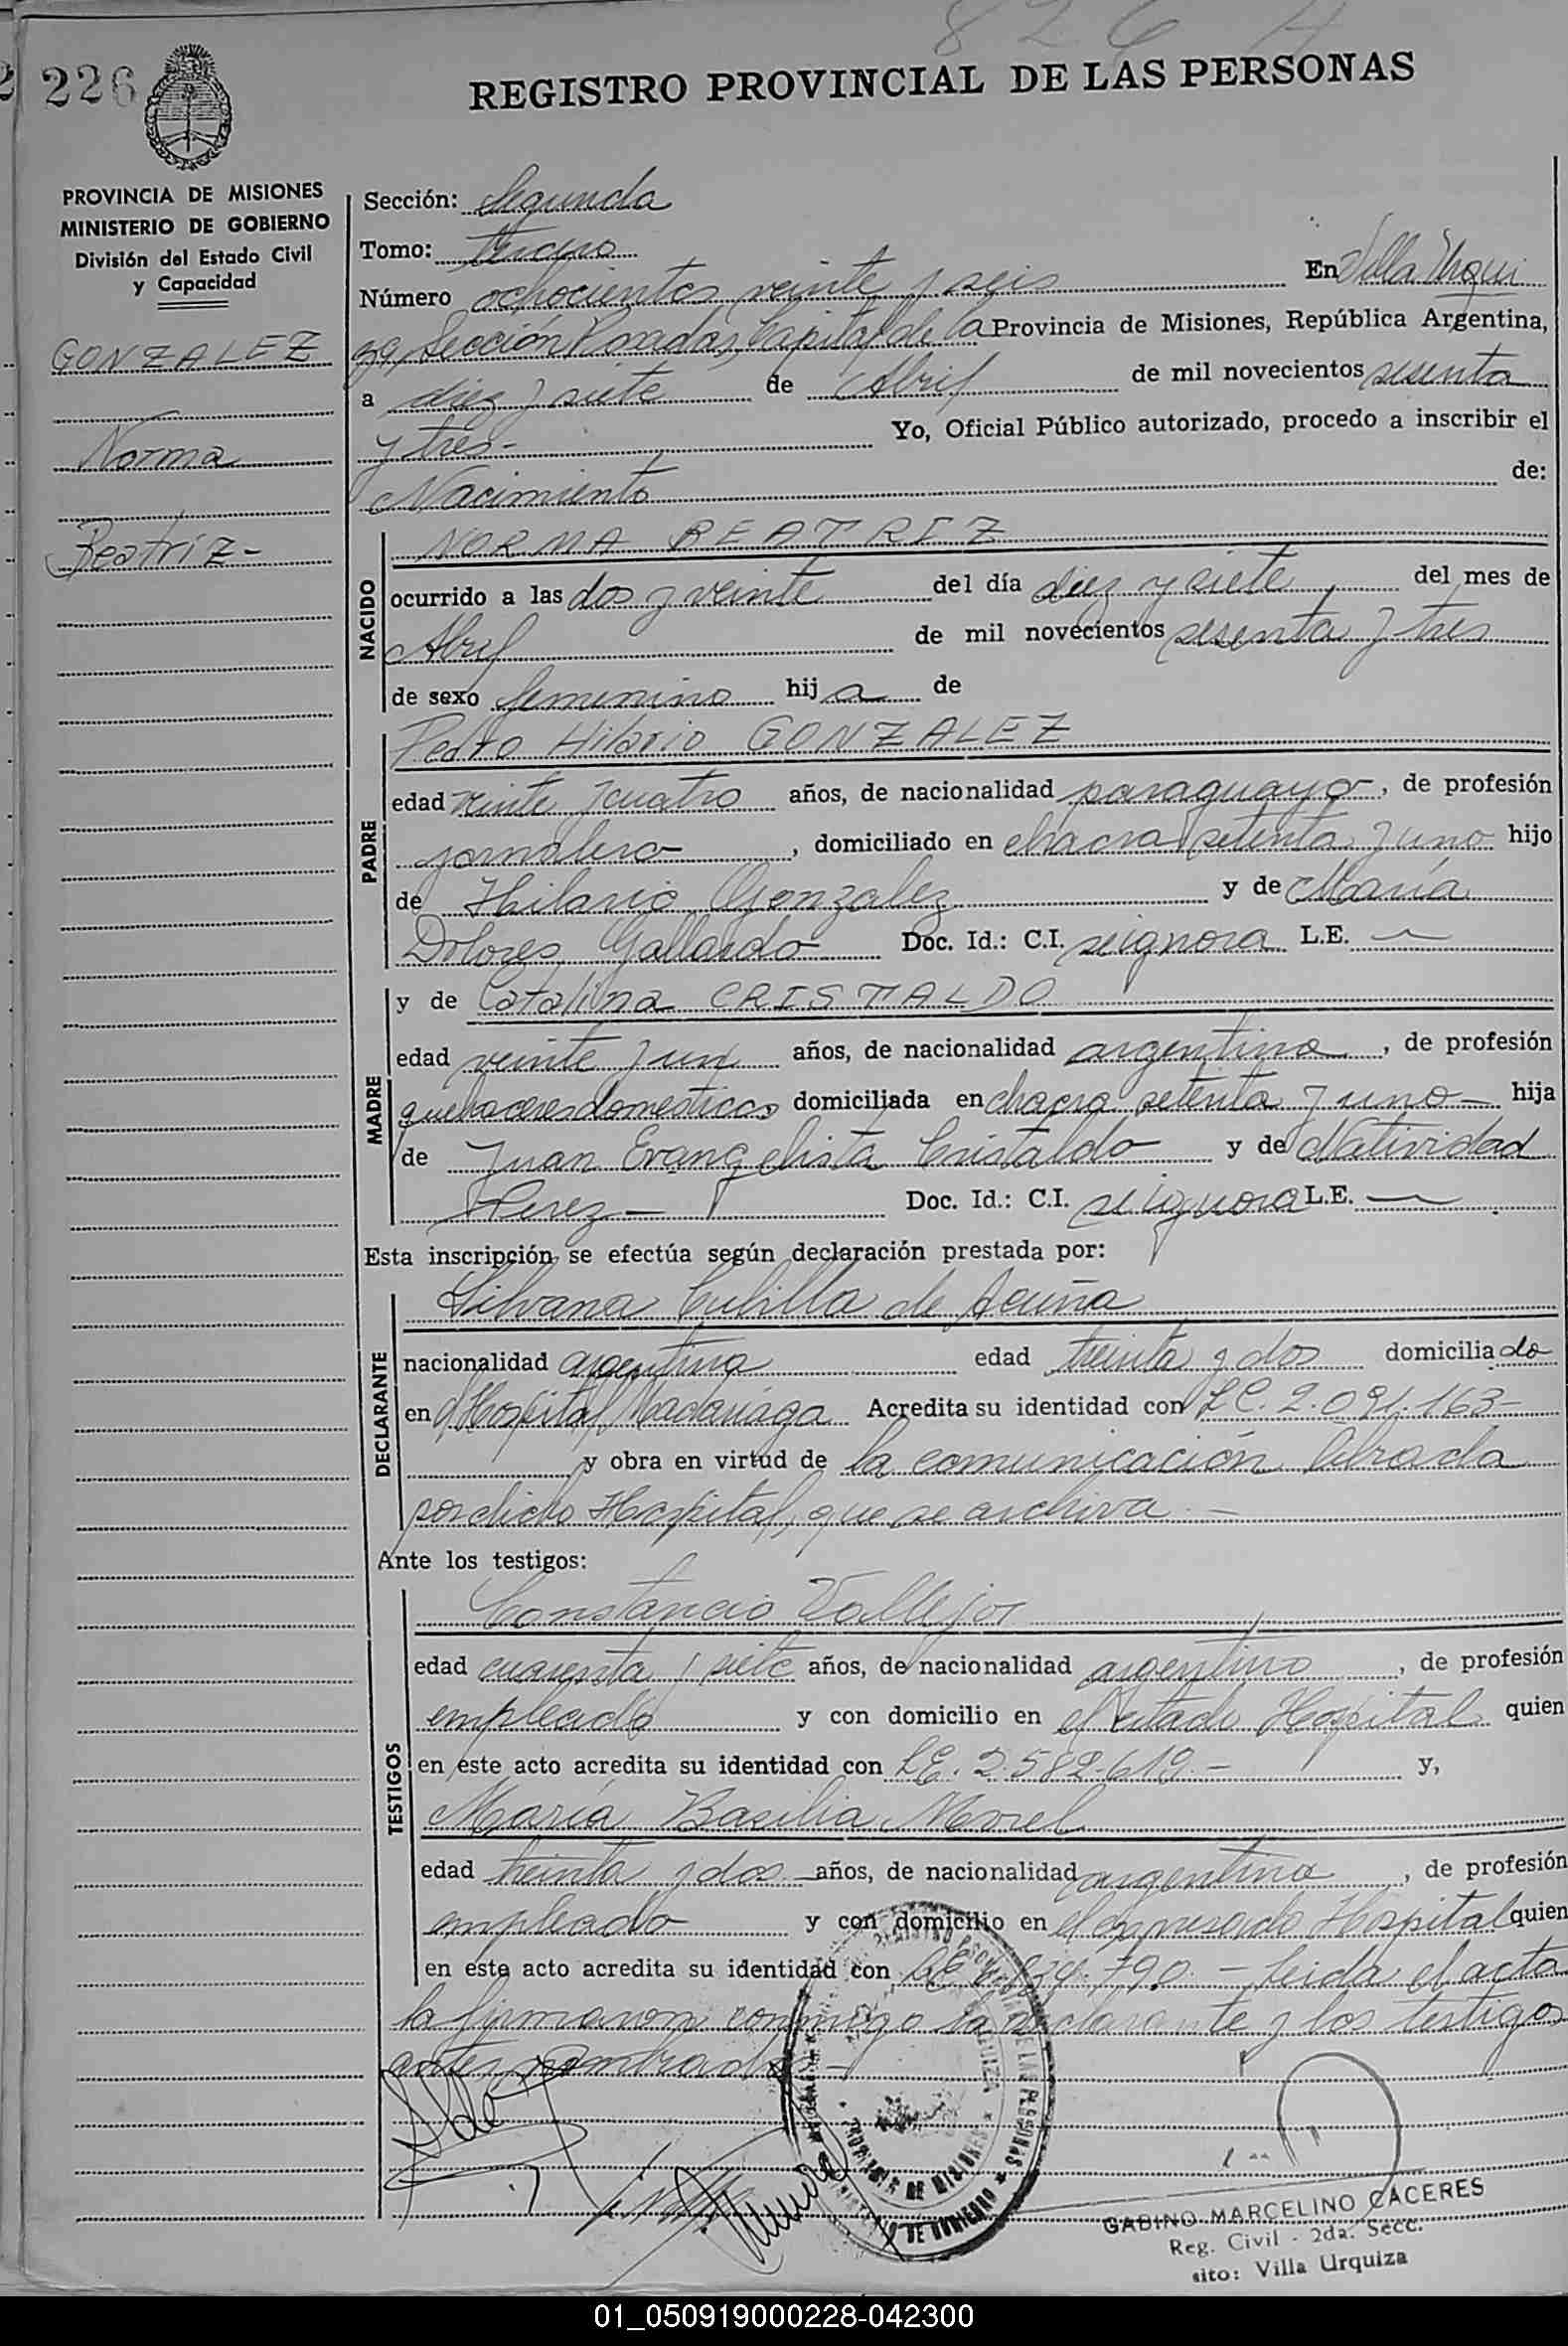 826 A
226
REGISTRO PROVINCIAL DE LAS PERSONAS
PROVINCIA DE MISIONES
MINISTERIO DE GOBIERNO
División del Estado Civil
y Capacidad
GONZALEZ
Norma
Beatriz-
Sección: Segunda
Tomo: tercero
Número ochocientos veinte y seis En Villa Urqui
za, Sección Posadas, Capital de la Provincia de Misiones, República Argentina,
a diez y siete de Abril de mil novecientos sesenta
y tres- Yo, Oficial Público autorizado, procedo a inscribir el
Nacimiento de:
NACIDO
NORMA BEATRIZ
ocurrido a las dos y veinte del día diez y siete del mes de
Abril de mil novecientos sesenta y tres
de sexo femenino hija de
PADRE
Pedro Hilario GONZALEZ
edad veinte y cuatro años, de nacionalidad paraguayo, de profesión
jornalero, domiciliado en chacra setenta y uno hijo
de Hilario Gonzalez y de María
Dolores Gallardo Doc. Id.: C.I. se ignora L.E. —
MADRE
y de Catalina CRISTALDO
edad veinte y un años, de nacionalidad argentina, de profesión
quehaceres domesticos domiciliada en chacra setenta y uno- hija
de Juan Evangelista Cristaldo y de Natividad
Perez- Doc. Id.: C.I. se ignora L.E. —
Esta inscripción se efectúa según declaración prestada por:
DECLARANTE
Silvana Cubilla de Acuña
nacionalidad argentina edad treinta y dos domiciliado
en Hospital Madariaga Acredita su identidad con L.C. 2.091.163-
y obra en virtud de la comunicación librada
por dicho Hospital, que se archiva.-
Ante los testigos:
TESTIGOS
Constancio Vallejos
edad cuarenta y siete años, de nacionalidad argentino, de profesión
empleado y con domicilio en el citado Hospital quien
en este acto acredita su identidad con L.E. 2.582.619.- y,
María Basilia Morel
edad treinta y dos años, de nacionalidad argentina, de profesión
empleado y con domicilio en el expresado Hospital quien
en este acto acredita su identidad con 790.- Leida el acta
la firmaron conmigo la declarante y los testigos
antes nombrados-
PROVINCIA DE MISIONES
MINISTERIO DE GOBIERNO
GABINO MARCELINO CACERES
Reg. Civil - 2da. Secc.
sito: Villa Urquiza
01_050919000228-042300